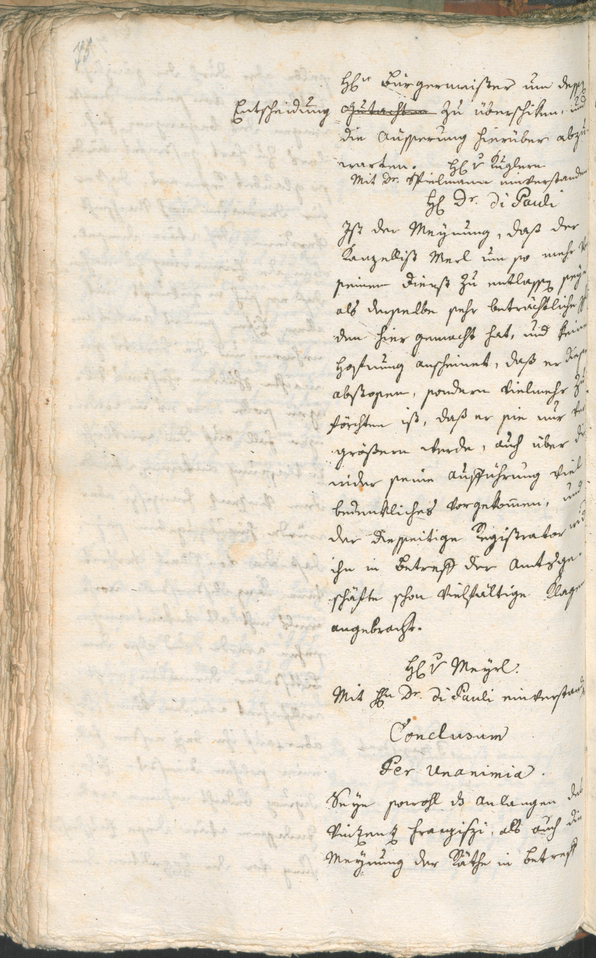 Hℋ Bürgermaister um dessen
Entscheidung Gutachten zu überschiken, und
die Äusserung hierüber abzu-
warten. H. v Kuglern
Mit Dr. Spielmann einverstanden
H. Dr. di Pauli
Ist der Meynung, daß der
Kanzellist Merl um so mehr
seinem Dienst zu entlassen seye
als derselbe sehr beträchtliche
den hier gemacht hat, und keine
Hofnung anscheinet, daß er diese
abstossen, sondern vielmehr zu
förchten ist, daß er sie nur
größern werde, auch über die
wider seine Aufführung viel
bedenkliches vorgekommen, und
der diesseitige Registrator wid
ihn in Betreff der Amtsge-
schäfte schon vielfältige Klagen
angebracht.
H. v Meyrl.
Mit H. Dr. di Pauli einverstand
Conclusum
Per Unanimia.
Seye sowohl ds Anlangen des
Vinzenz Franziszi, als auch die
Meynung der Räthe in betreff